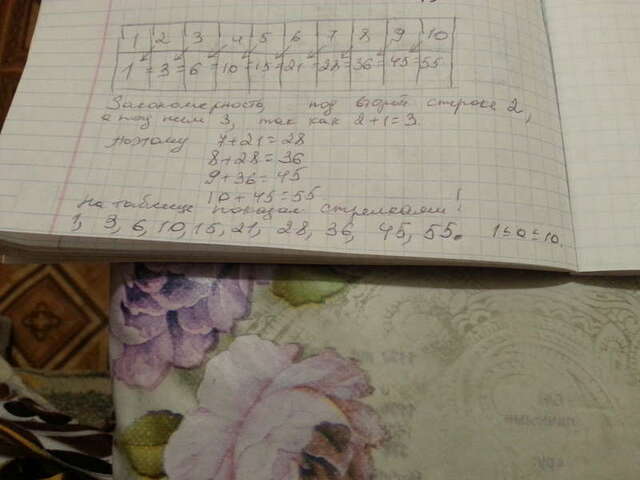 1 2 3 4 5 6 7 8 9 10
1 = 3 = 6 = 10 = 15 = 21 = 28 = 36 = 45 = 55
Закономерность, под второй строке 2,
а под ним 3, так как 2+1=3.
поэтому 7+21=28
8+28=36
9+36=45
10+45=55
На таблице показал стрелками!
1, 3, 6, 10, 15, 21, 28, 36, 45, 55. 1≤a≤10.